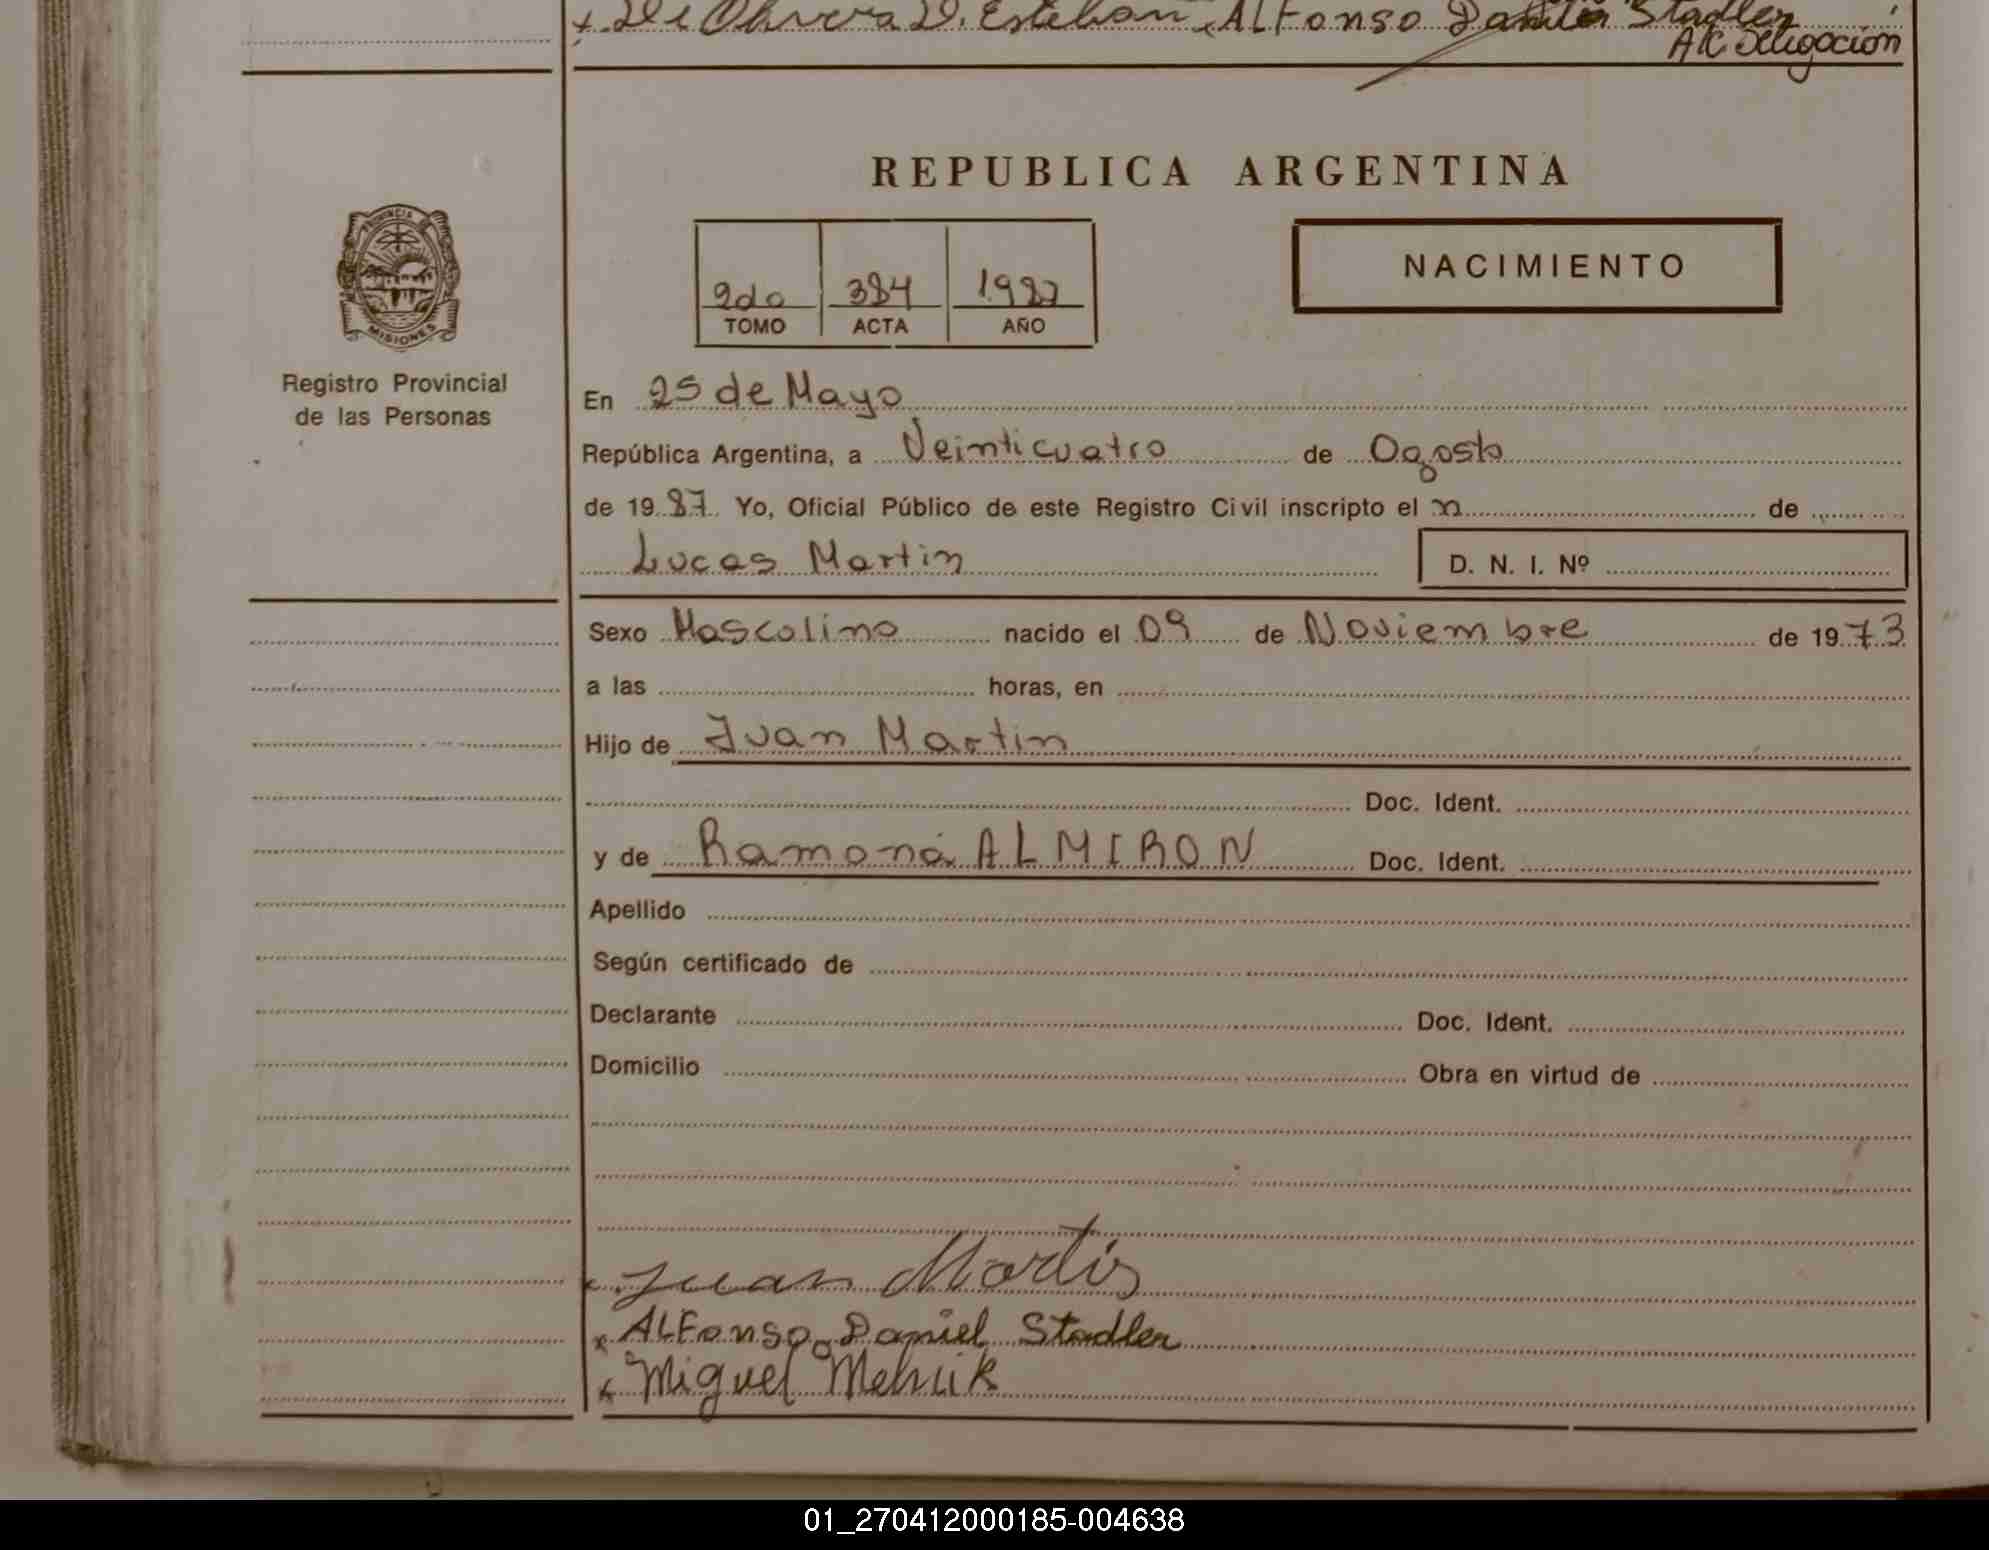 x De Olivera D. Esteban x ALFonso Daniel Stadler
A/C Delegación
REPUBLICA ARGENTINA
PROVINCIA DE
MISIONES
Registro Provincial
de las Personas
2do 384 1987
TOMO ACTA AÑO
NACIMIENTO
En 25 de Mayo
República Argentina, a Veinticuatro de Agosto
de 1987 Yo, Oficial Público de este Registro Civil inscripto el n de
Lucas Martin D. N. I. Nº
Sexo Mascolino nacido el 09 de Noviembre de 1973
a las horas, en
Hijo de Juan Martin
Doc. Ident.
y de Ramona ALMIRON Doc. Ident.
Apellido
Según certificado de
Declarante Doc. Ident.
Domicilio Obra en virtud de
x Juan Martin
x ALFonso Daniel Stadler
x Miguel Melnik
01_270412000185-004638